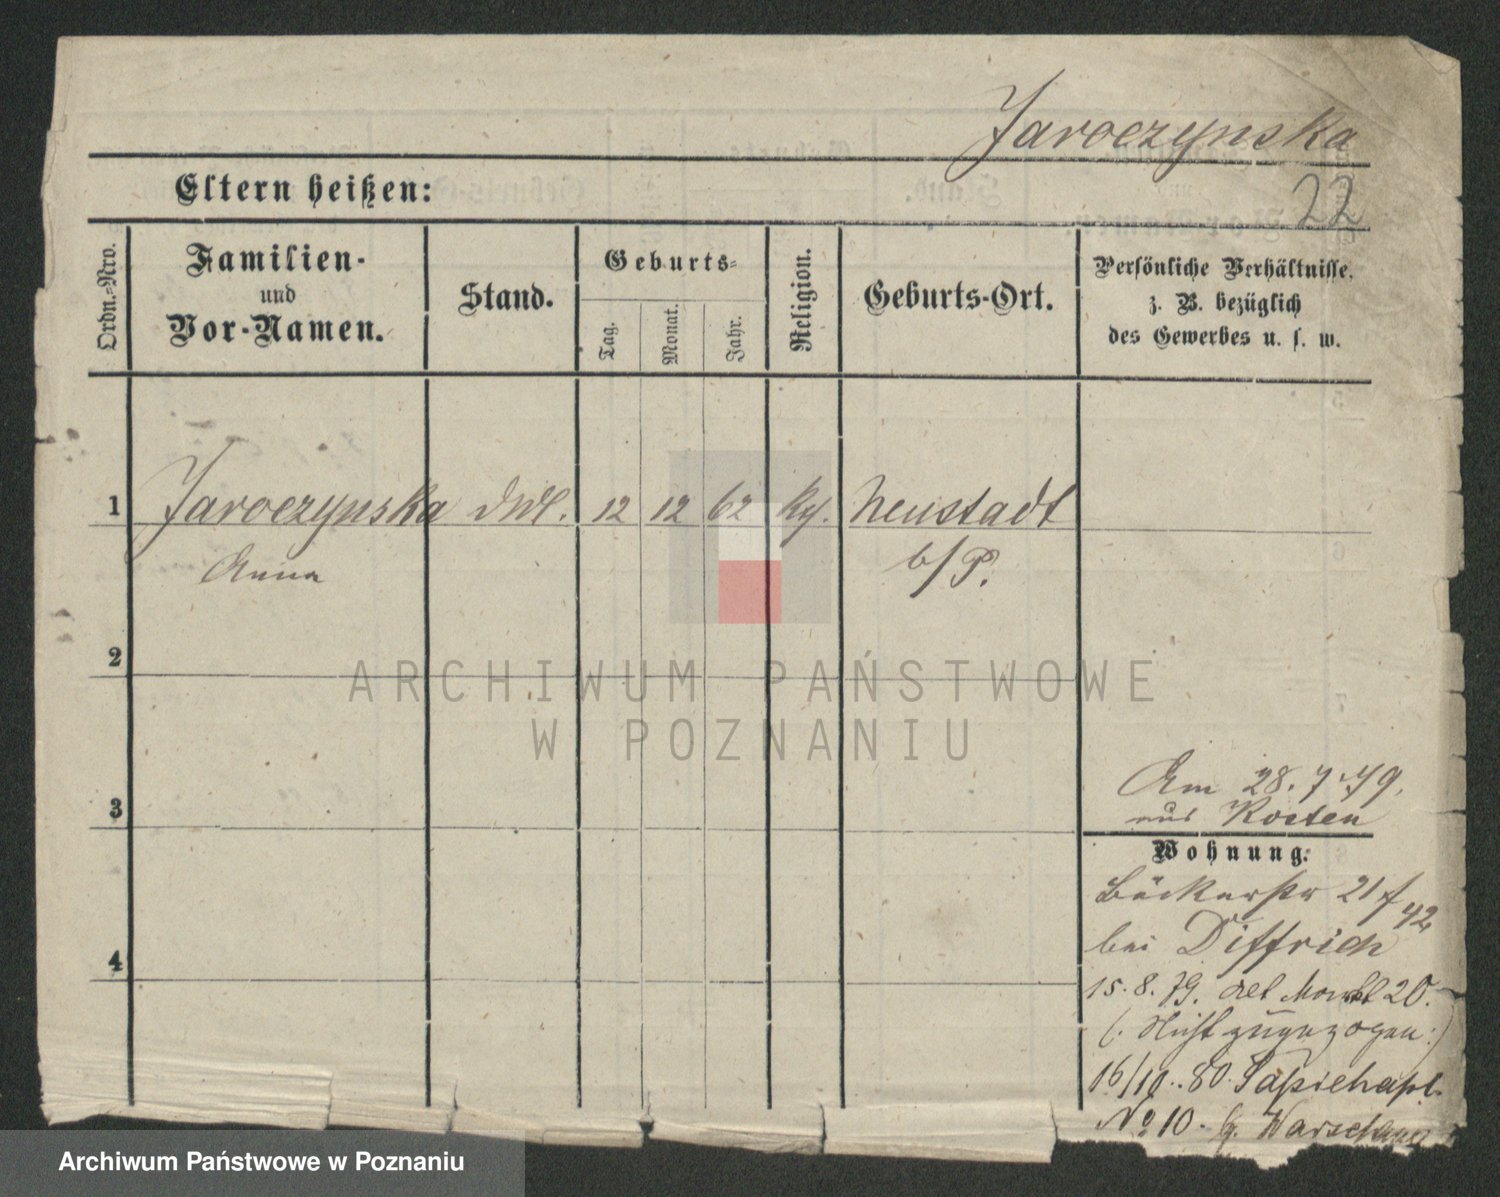 Jaroczynska
Eltern heißen:
22
Ordn.-Nro.
Familien-
und
Vor-Namen.
Stand.
Geburts-
Tag.
Monat.
Jahr.
Religion.
Geburts-Ort.
Persönliche Verhältnisse.
z. B. bezüglich
des Gewerbes u. s. w.
1 Jaroczynska 12 12 62 Neustadt
Anna b/P.
2
3
4
Am 28.7.79.
aus Kosten
Wohnung.
Bäckerstr 21
bei Diffrich
15.8.79. Markt 20.
(: Nicht zugezogen :)
16/10.80. Sapiehapl.
No 10.
ARCHIWUM PAŃSTWOWE
W POZNANIU
Archiwum Państwowe w Poznaniu